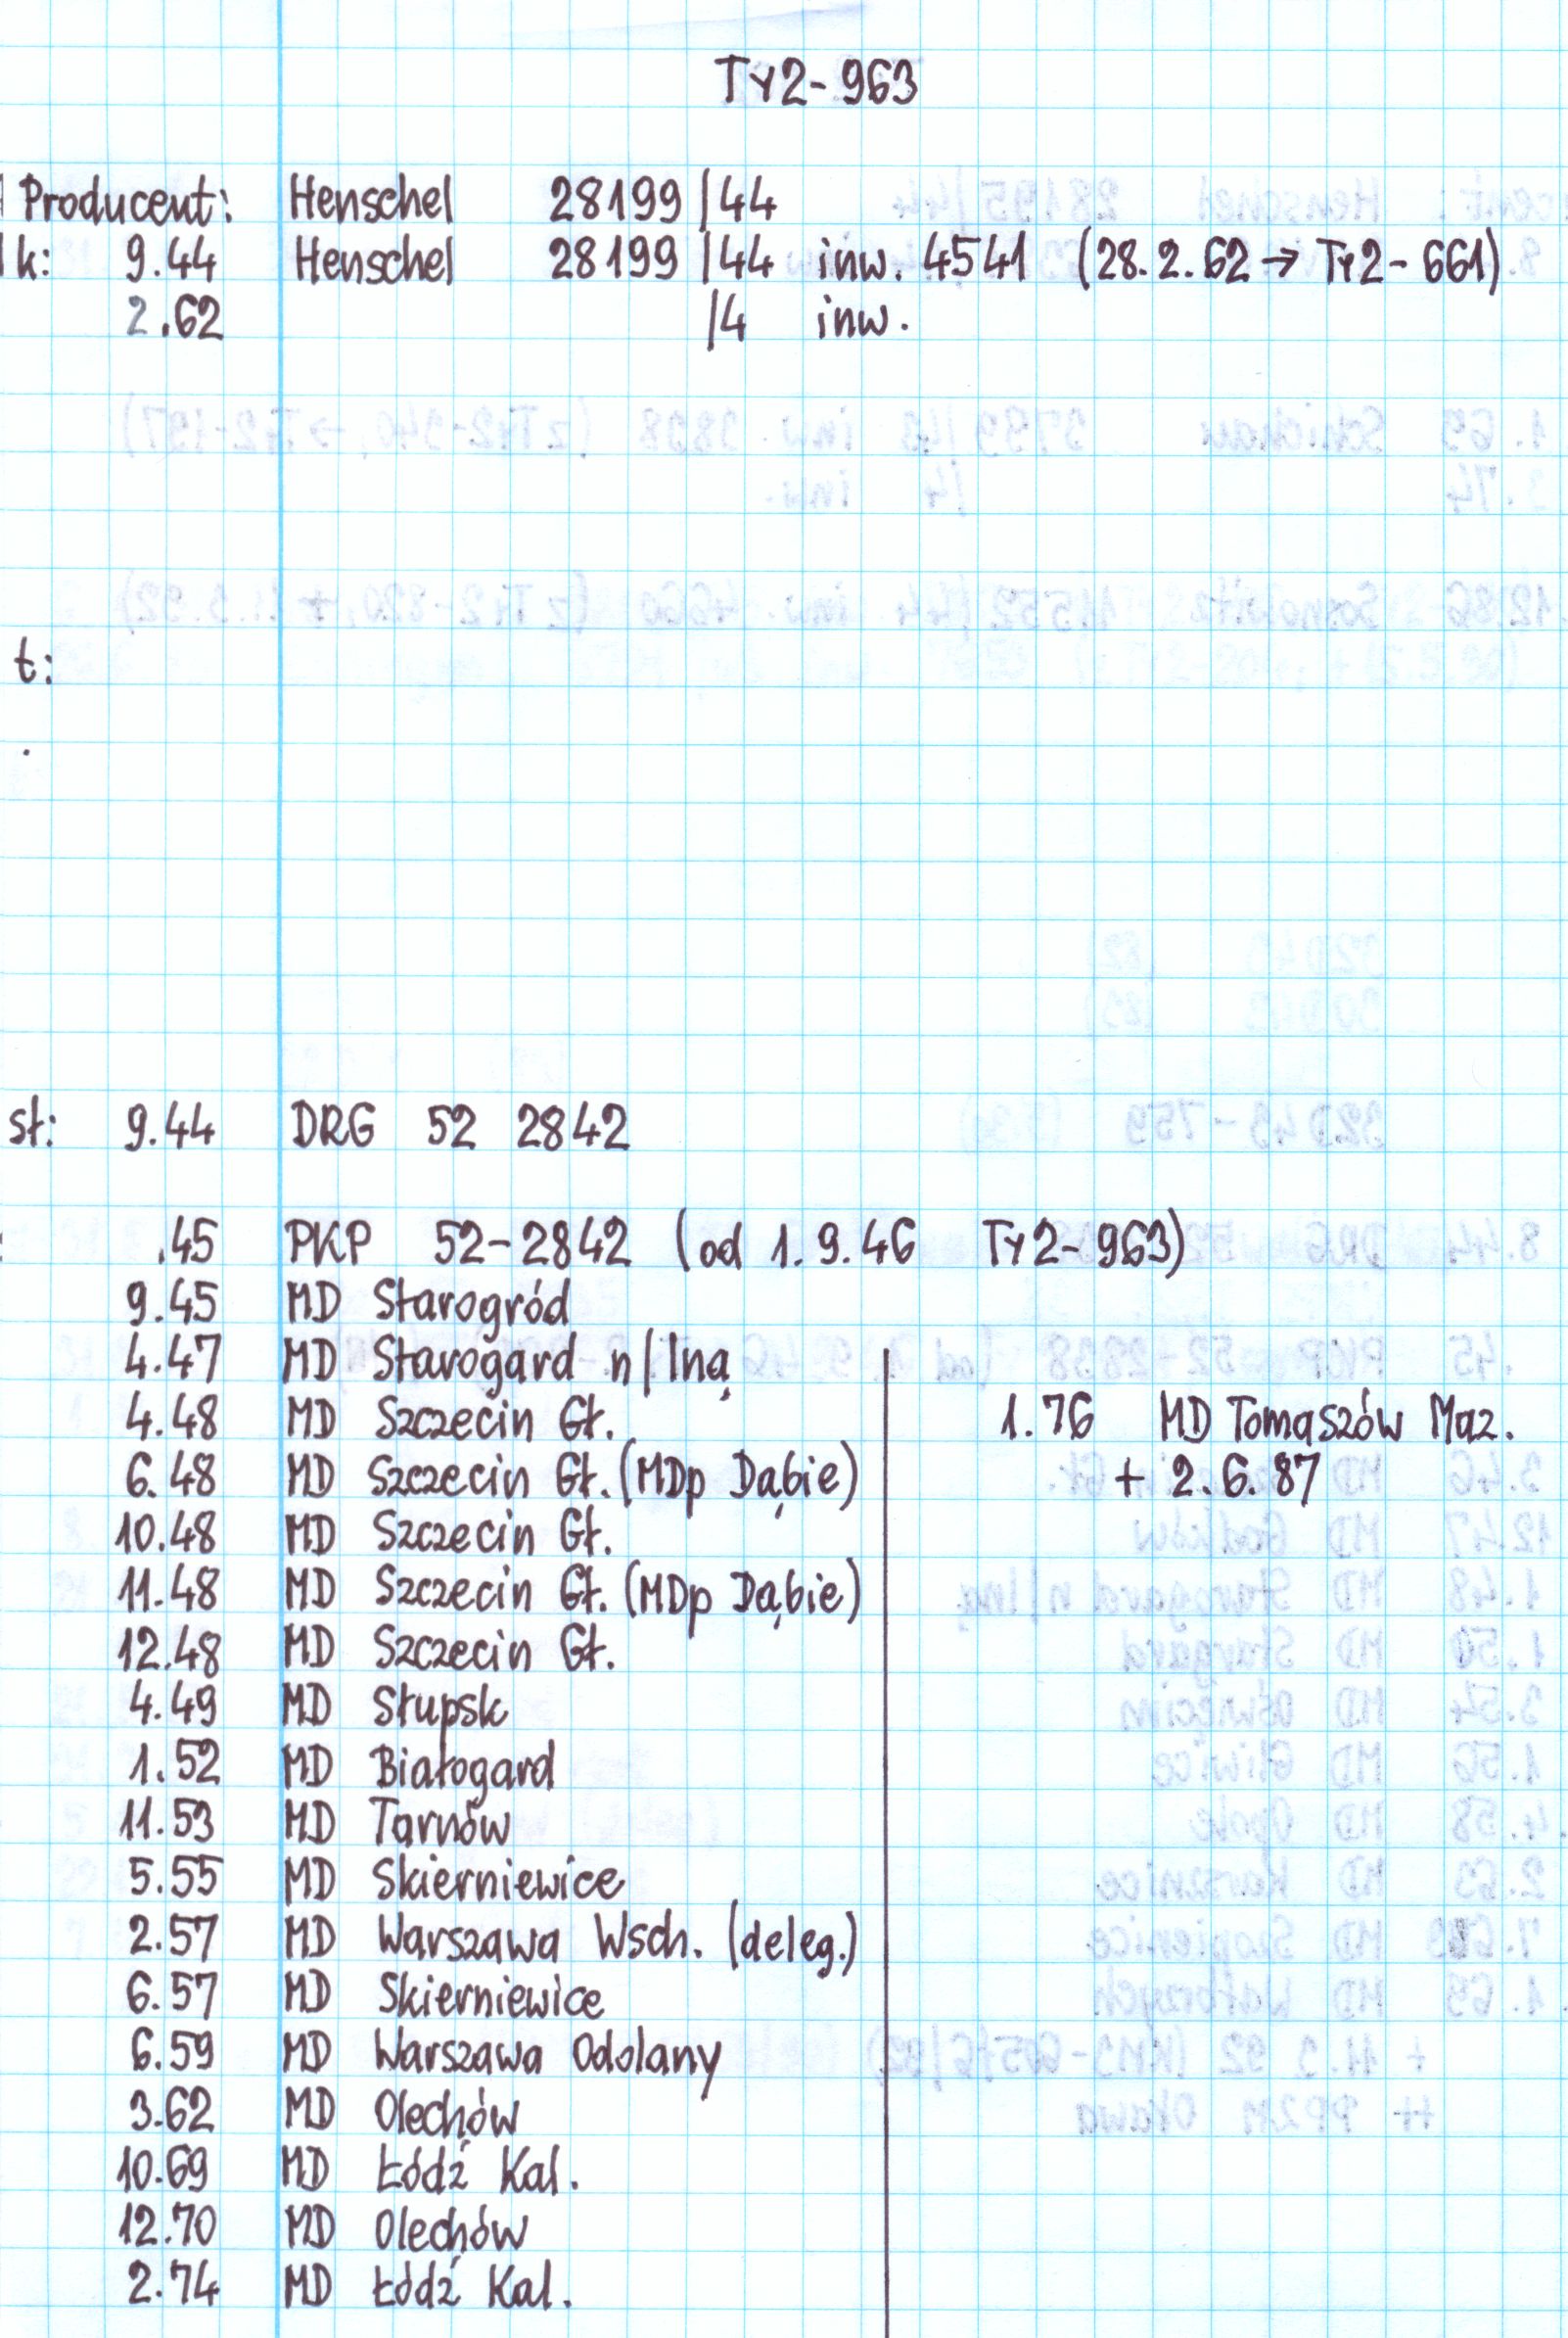 Ty2-963
Producent: Henschel 28199/44
k: 9.44 Henschel 28199/44 inw. 4541 (28.2.62 → Ty2-661)
2.62 /4 inw.
t:
st: 9.44 DRG 52 2842
.45 PKP 52-2842 (od 1.9.46 Ty2-963)
9.45 MD Starogród
4.47 MD Starogard n/Iną
4.48 MD Szczecin Gł.
6.48 MD Szczecin Gł. (MDp Dąbie)
10.48 MD Szczecin Gł.
11.48 MD Szczecin Gł. (MDp Dąbie)
12.48 MD Szczecin Gł.
4.49 MD Słupsk
1.52 MD Białogard
11.53 MD Tarnów
5.55 MD Skierniewice
2.57 MD Warszawa Wsch. (deleg.)
6.57 MD Skierniewice
6.59 MD Warszawa Odolany
3.62 MD Olechów
10.69 MD Łódź Kal.
12.70 MD Olechów
2.74 MD Łódź Kal.
1.76 MD Tomaszów Maz.
+ 2.6.87